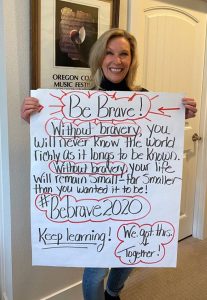 OREGON
MUSIC FESTIV
Be Brave!
Without bravery, you
will never know the world
richly as it longs to be known.
Without bravery your life
will remain small - far smaller
than you wanted it to be!
#Bebrave2020
Keep learning!
We got this.
Together!